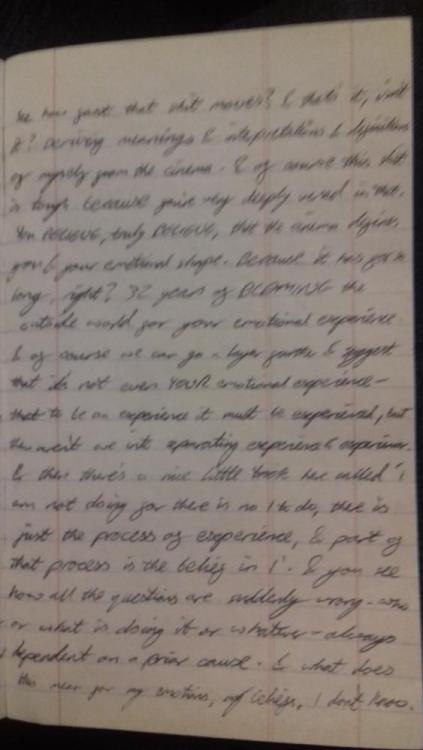 See how fast that shit moves? & that's it, isn't
it? Deriving meanings & interpretations & definitions
of myself from the cinema. & of course this shit
is tough because you're very deeply versed in that.
You BELIEVE, truly BELIEVE, that the cinema defines
you & your emotional shape. Because it has for so
long, right? 32 years of BLAMING the
outside world for your emotional experience.
& of course we can go a layer further & suggest
that it's not even YOUR emotional experience –
that to be an experience it must be experienced, but
then aren't we into separating experience & experiencer.
& then there's a nice little book here called 'I
am not doing for there is no I to do, there is
just the process of experience, & part of
that process is the belief in I'. & you see
how all the questions are suddenly wrong – who
or what is doing it or whatever – always
dependent on a prior cause. & what does
this mean for my emotions, my beliefs, I don't know.